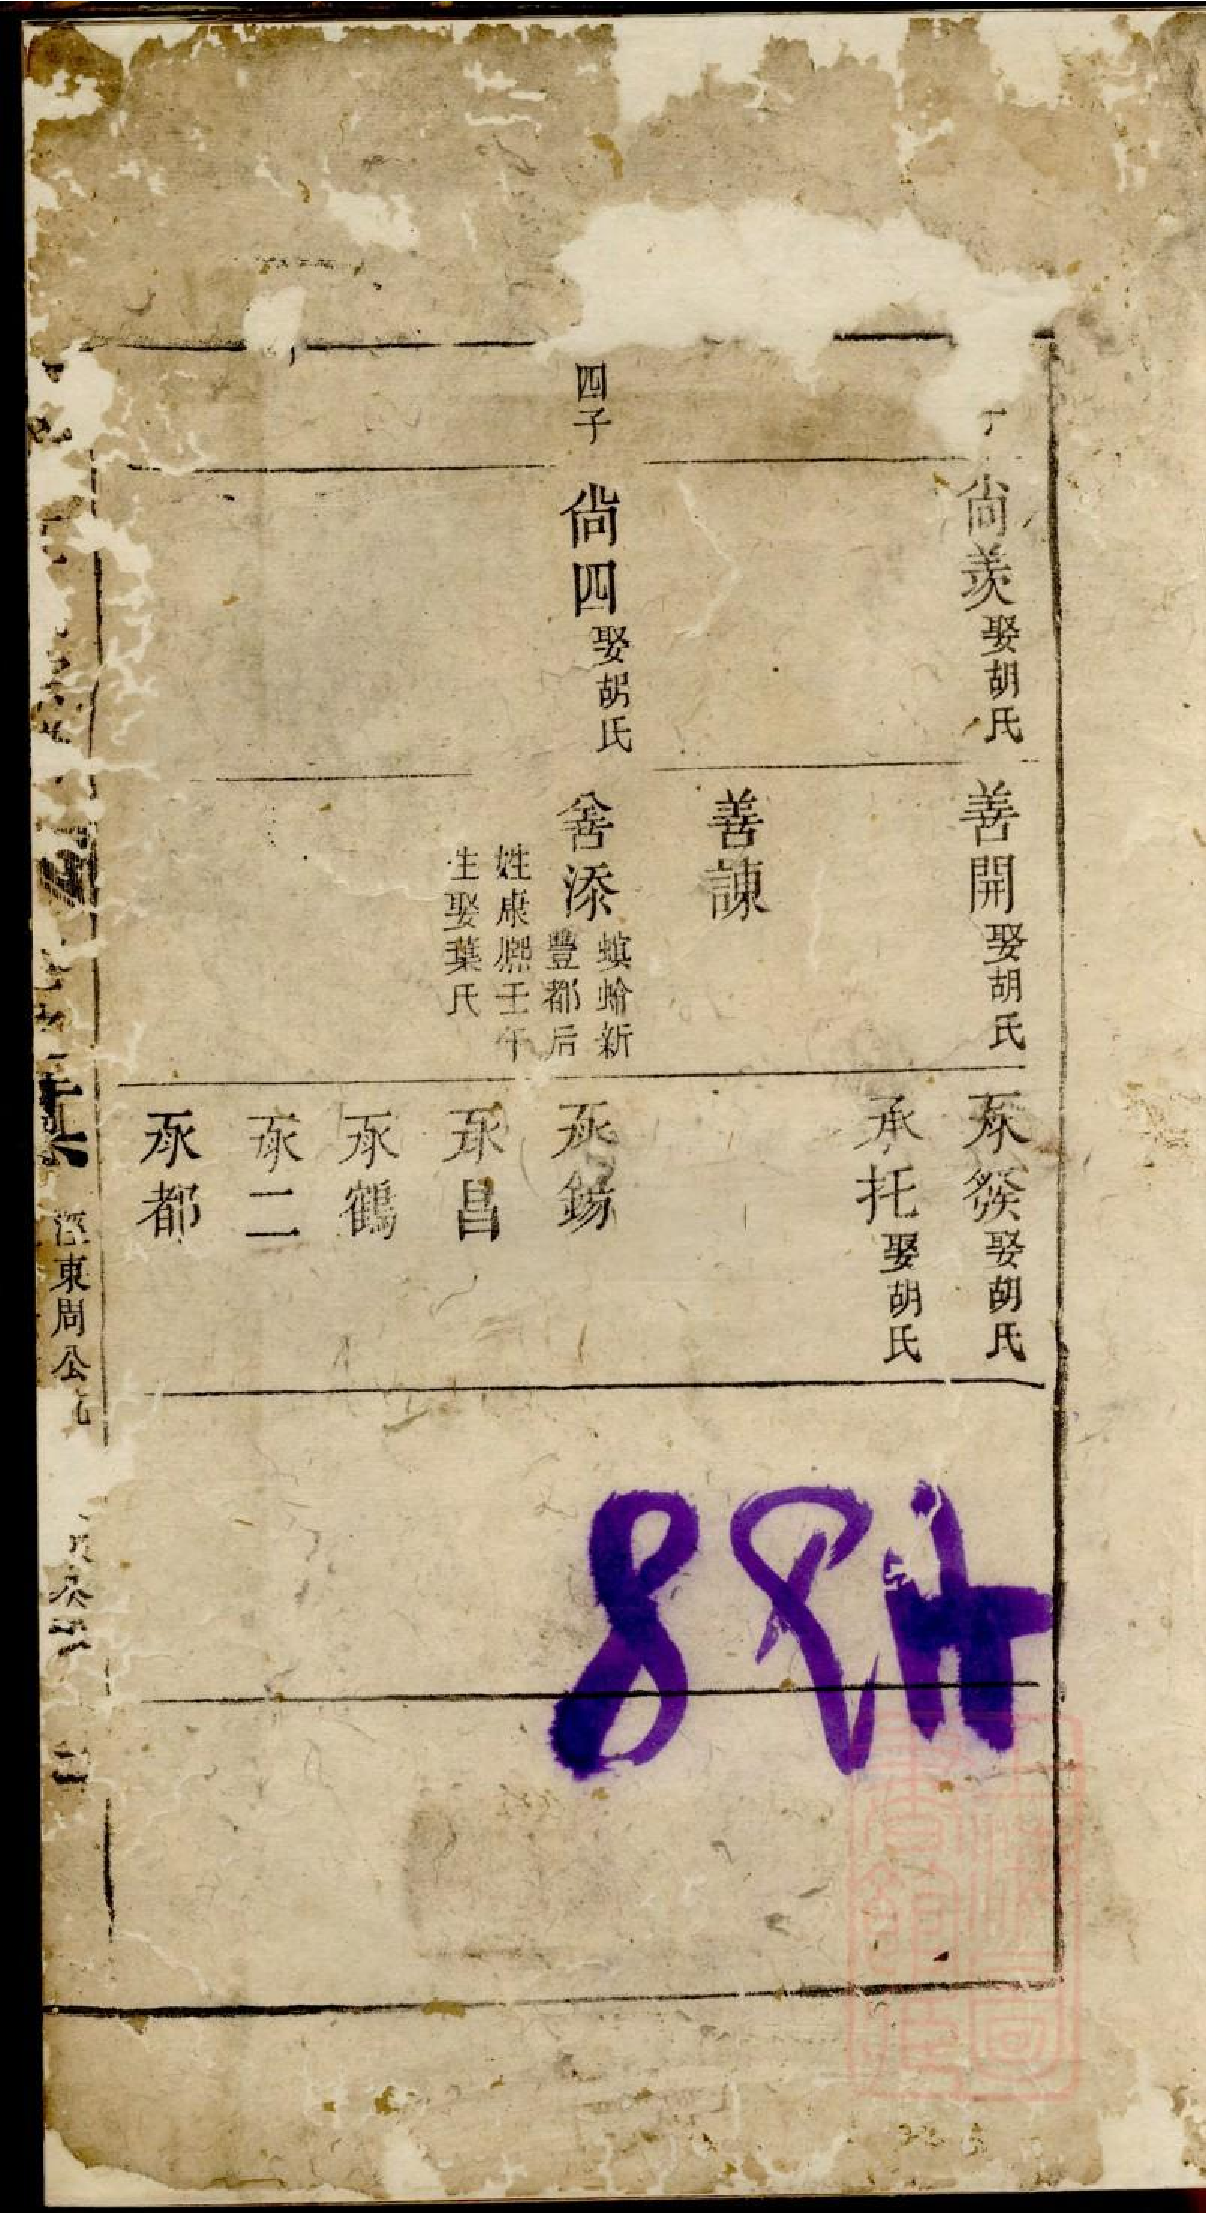 尙羨娶胡氏
善開娶胡氏
承發娶胡氏
承托娶胡氏
善諫
四子
尙四娶胡氏
善添螟蛉新豐都后姓康熙壬午生娶葉氏
承錫
承昌
承鶴
承二
承都
涇東周公